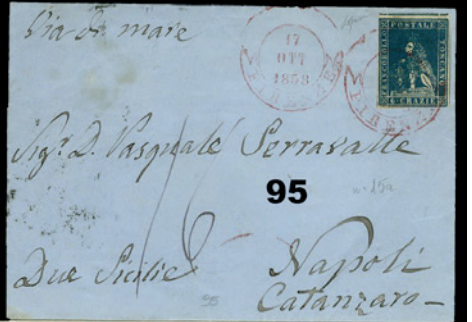 Via di mare
17
OTT
1858
FIRENZE
FRANCOBOLLO POSTALE TOSCANO
6 CRAZIE
FIRENZE
Sig.r D. Pasquale Serravalle
95
n. 15a
16
Due Sicilie
Napoli
Catanzaro
95